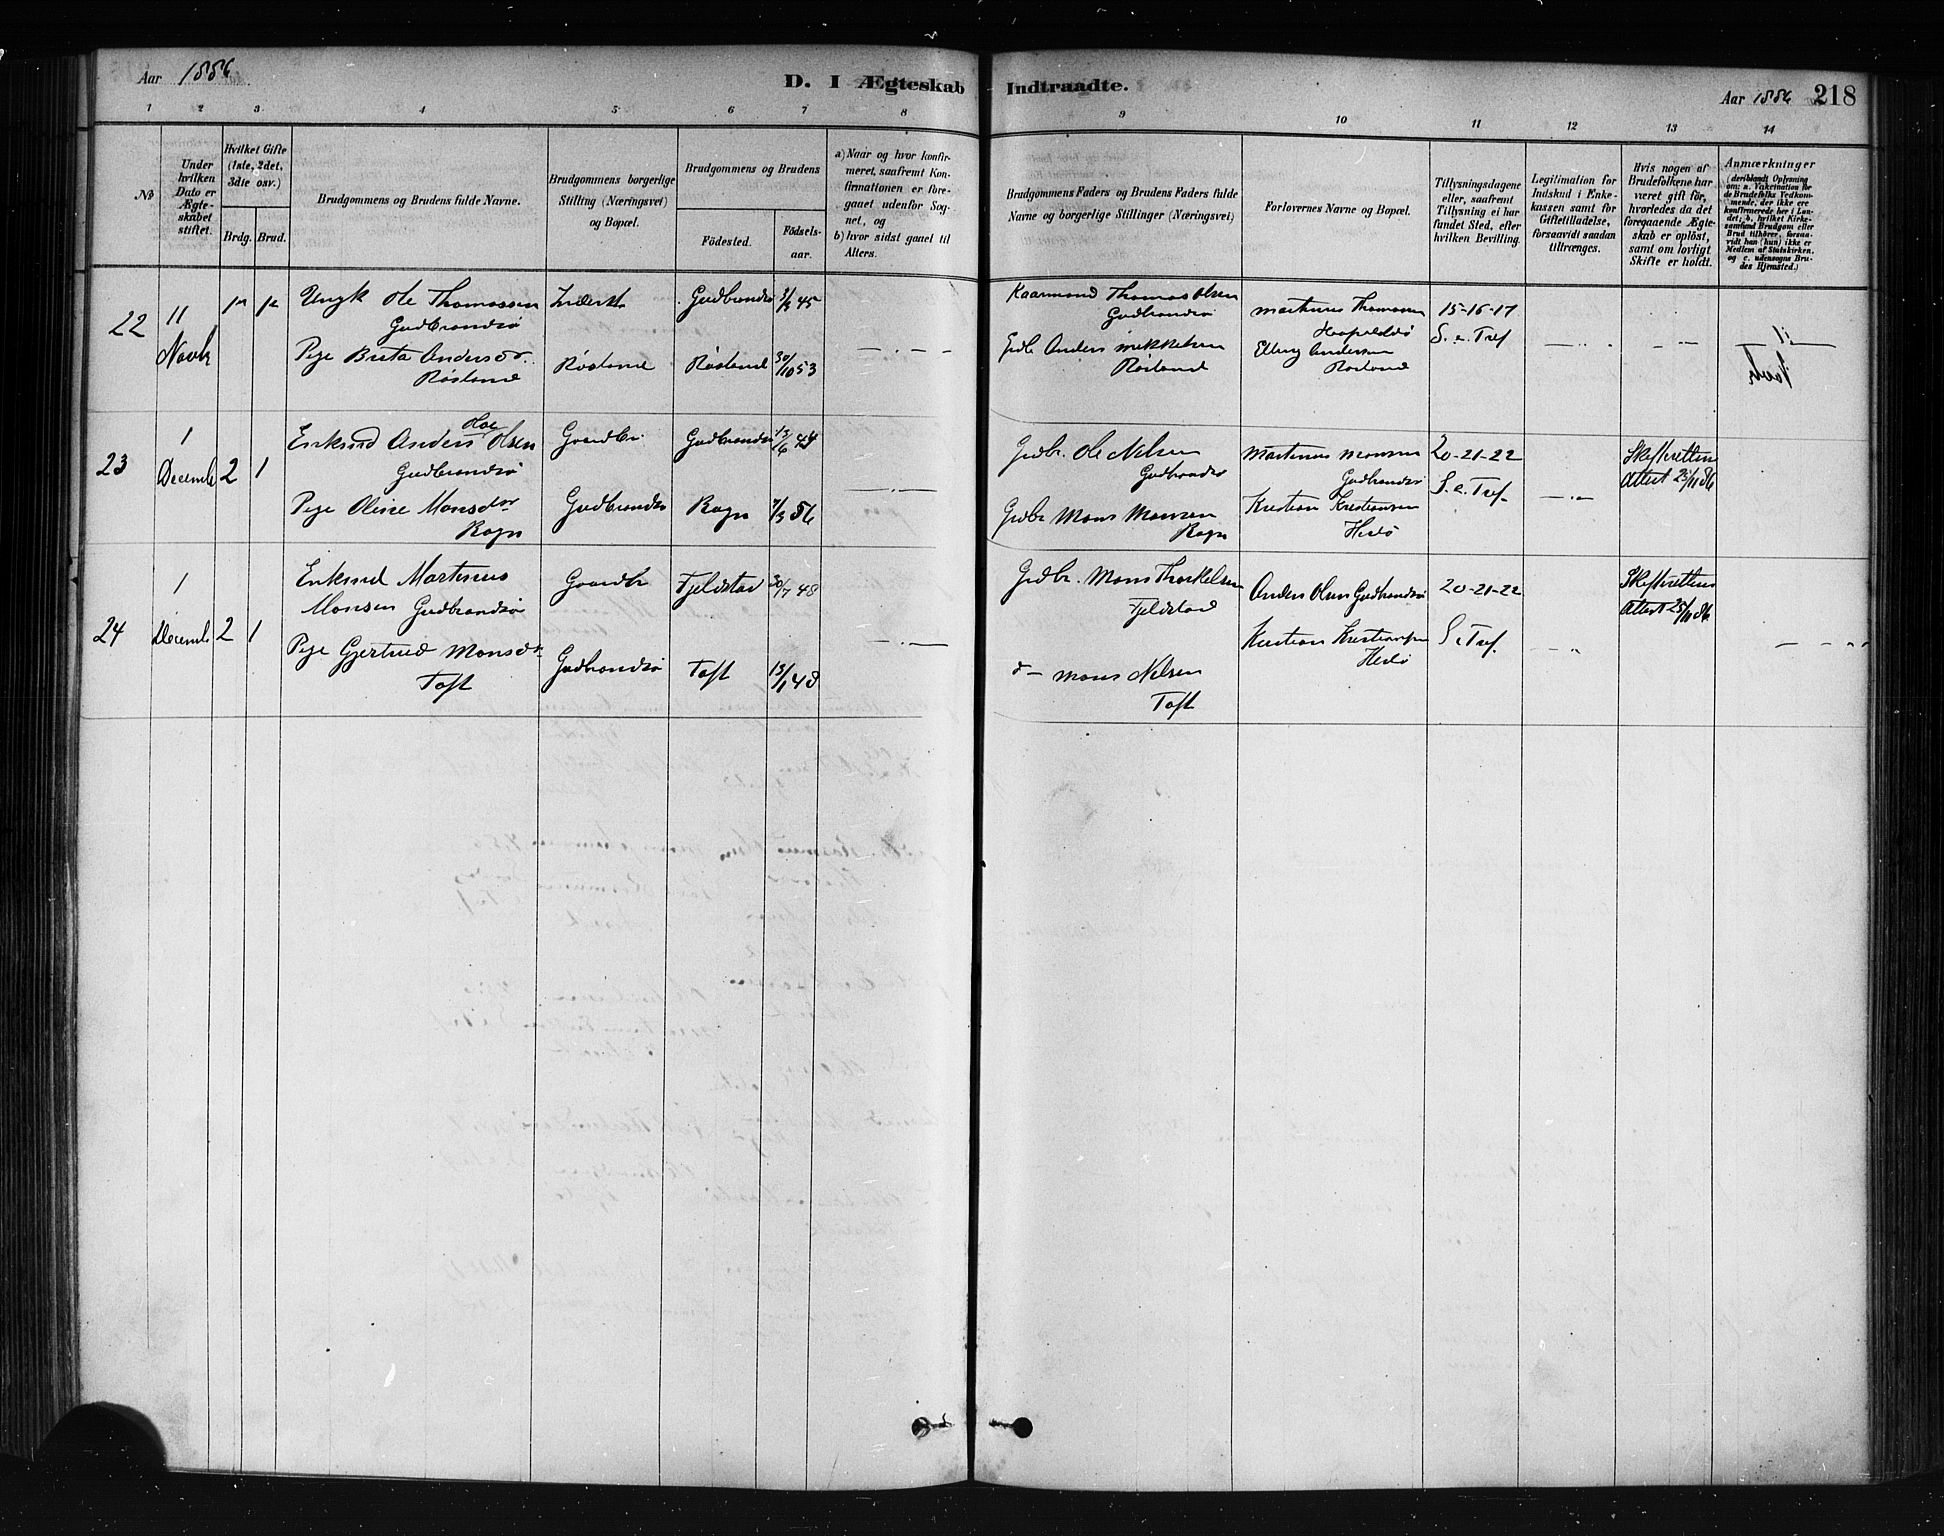 Aar 1886
D. I Ægteskab Indtraadte.
Aar 1886 218
1 2 3 4 5 6 7 8 9 10 11 12 13 14
№
Under hvilken Dato er Ægteskabet stiftet.
Hvilket Gifte (1ste, 2det, 3die osv.)
Brdg. Brud.
Brudgommens og Brudens fulde Navne.
Brudgommens borgerlige Stilling (Næringsvei) og Bopæl.
Brudgommens og Brudens
Födested.
Födselsaar.
a) Naar og hvor konfirmeret, saafremt Konfirmationen er foregaaet udenfor Sognet, og
b) hvor sidst gaaet til Alters.
Brudgommens Faders og Brudens Faders fulde Navne og borgerlige Stillinger (Næringsvei)
Forlovernes Navne og Bopæl.
Tillysningsdagene eller, saafremt Tillysning ei har fundet Sted, efter hvilken Bevilling.
Legitimation for Indskud i Enkekassen samt for Giftetilladelse, forsaavidt saadan tiltrænges.
Hvis nogen af Brudefolkene har været gift för, hvorledes da det foregaaende Ægteskab er oplöst, samt om lovligt Skifte er holdt.
Anmærkninger (deriblandt Oplysning om: a. Vakcination for de Brudefolks Vedkommende, der ikke ere konfirmerede her i Landet; b. hvilket Kirkesamfund Brudgom eller Brud tilhörer, forsaavidt han (hun) ikke er Medlem af Statskirken, og c. udensogns Brudes Hjemsted.)
22
11 Novb
Ungk Ole Thomassen
Gudbrandsö
Inderst
Gudbrandsö
45
Kaarmand Thomas Olsen
Gudbrandsö
Martinus Thomassen
15-16-17
S. e. Tref
Pige Brita Andersdr
Röstand
Röstand
Röstand
30/10 53
Gdb. Anders Mikkelsen
Röstand
Elling Andersen
Röstand
23
1 Decemb
2 1
Enkmd Anders Olsen
Gudbrandsö
Gaardbr.
Gudbrandsö
13/6 44
Grdbr. Ole Nilsen
Gudbrandsö
Martinus Monsen
Gudbrandsö
20-21-22
S. e. Tref.
Skifterettens
Attest 25/11 86
Pige Oline Monsdr
Rogn
Gudbrandsö
Rogn
7/3 56
Grdbr Mons Monsen
Rogn
Kristian Kristiansen
Herdö
24
1 Decemb
2 1
Enkmd Martinus
Monsen Gudbrandsö
Gaardbr
Fjeldstad
30/7 48
Grdbr. Mons Thorkelsen
Fjeldstad
Anders Olsen Gudbrandsö
20-21-22
S e Tref.
Skifterettens
Attest 25/11 86
Pige Gjertrud Monsdr
Toft
Gudbrandsö
Toft
13/1 48
d - Mons Nilsen
Toft
Kristian Kristiansen
Herdö